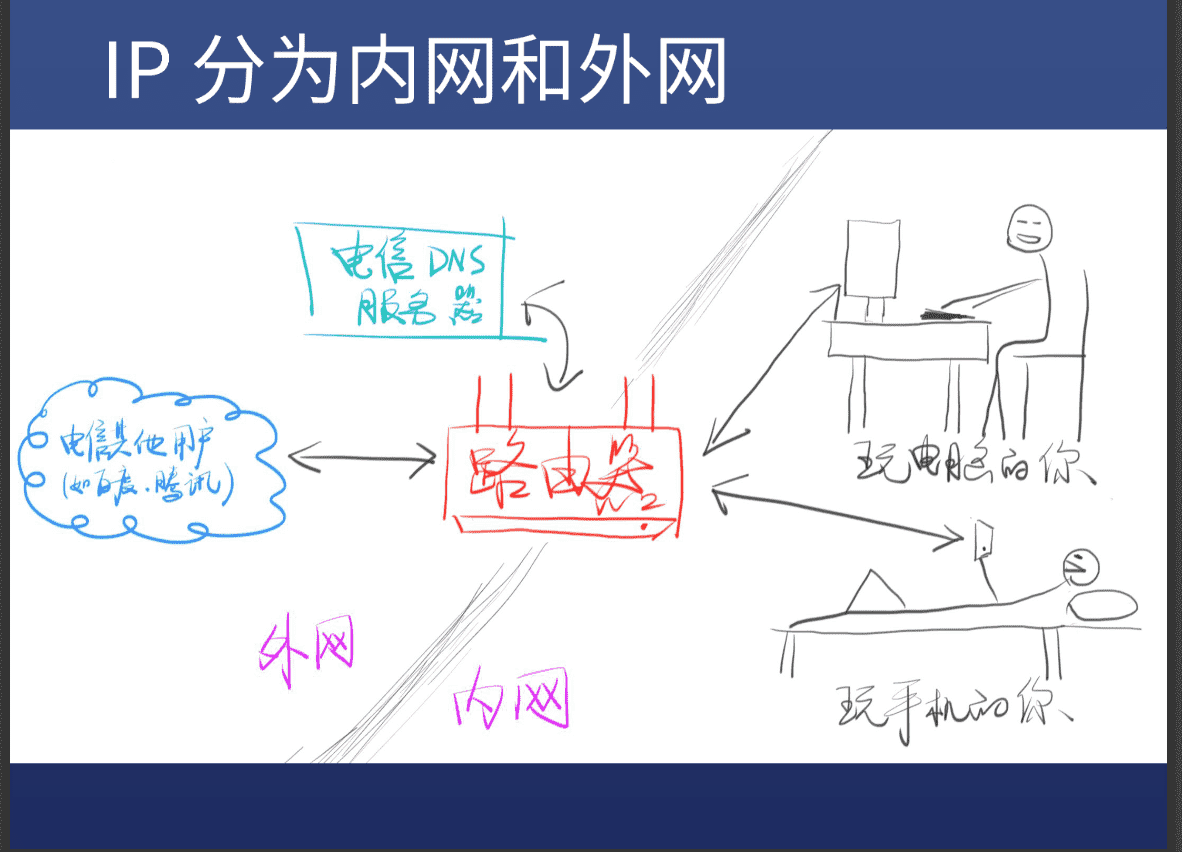 IP 分为内网和外网
电信 DNS
服务器
电信其他用户
(如百度、腾讯)
路由器
玩电脑的你
外网
内网
玩手机的你